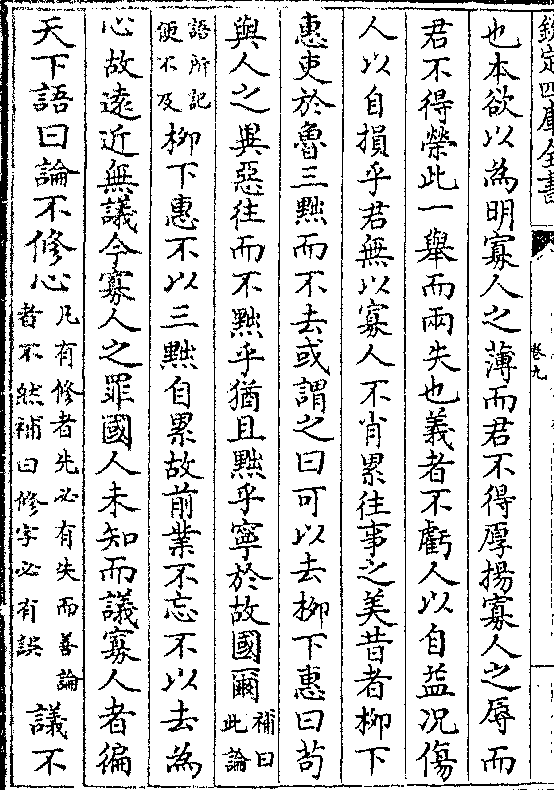 欽定四庫全書
卷九
也本欲以為明寡人之薄而君不得厚揚寡人之辱而
君不得榮此一舉而兩失也義者不虧人以自益况傷
人以自損乎君無以寡人不肖累往事之美昔者柳下
惠吏於魯三黜而不去或謂之曰可以去柳下惠曰苟
與人之異惡往而不黜乎猶且黜乎寧於故國爾補曰此論
語所記便不及柳下惠不以三黜自累故前業不忘不以去為
心故遠近無議今寡人之罪國人未知而議寡人者徧
天下語曰論不修心凡有修者先必有失而善論者不然補曰修字必有誤議不